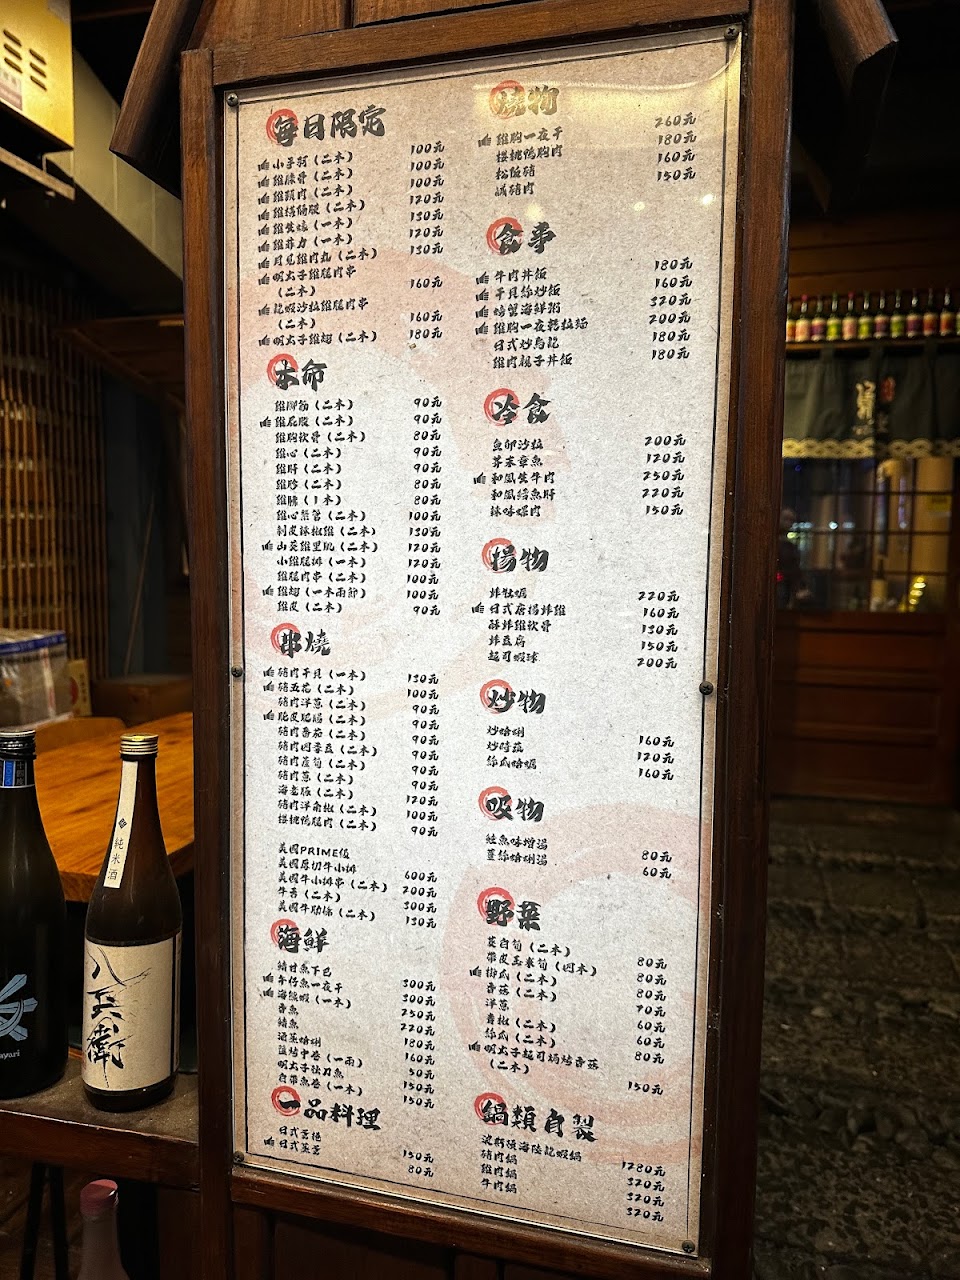 每日限定
小羊肩（二本） 100元
雞膝骨（二本） 100元
雞頸肉（二本） 100元
雞攜腸腿（二本） 120元
雞生蠔（一本） 130元
雞菲力（一本） 120元
月見雞肉丸（二本） 130元
明太子雞腿肉串
（二本） 160元
龍蝦沙拉雞腿肉串
（二本） 160元
明太子雞翅（二本） 180元
本命
雞腳筋（二本） 90元
雞屁股（二本） 90元
雞胸軟骨（二本） 80元
雞心（二本） 90元
雞肝（二本） 90元
雞胗（二本） 80元
雞腱（1本） 80元
雞心血管（二本） 100元
剝皮辣椒雞（二本） 130元
山葵雞里肌（二本） 120元
小雞腿排（一本） 120元
雞腿肉串（二本） 100元
雞翅（一本兩節） 100元
雞皮（二本） 90元
串燒
豬肉干貝（一本） 130元
豬五花（二本） 100元
豬肉洋蔥（二本） 90元
脆皮肥腸（二本） 90元
豬肉番茄（二本） 90元
豬肉四季豆（二本） 90元
豬肉蘆筍（二本） 90元
豬肉蔥（二本） 90元
海老豚（二本） 120元
豬肉洋南椒（二本） 100元
櫻桃鴨腿肉（二本） 90元
美國PRIME級
美國厚切牛小排 600元
美國牛小排串（二本） 200元
牛舌（二本） 300元
美國牛肋條（二本） 130元
海鮮
鰤甘魚下巴 300元
午仔魚一夜干 300元
海綿蝦（一本） 250元
香魚 220元
鯖魚 180元
酒蒸蛤蜊 160元
鹽烤中卷（一兩） 50元
明太子秋刀魚 150元
自帶魚卷（一本） 150元
一品料理
日式蛋捲 150元
日式蒸蛋 80元
燒物
雞胸一夜干 260元
櫻桃鴨胸肉 180元
松阪豬 160元
鹹豬肉 150元
食事
牛肉丼飯 180元
干貝絲炒飯 160元
螃蟹海鮮粥 320元
雞胸一夜乾拉麵 200元
日式炒烏龍 180元
雞肉親子丼飯 180元
冷食
魚卵沙拉 200元
芥末章魚 120元
和風生牛肉 250元
和風鱈魚肝 220元
辣味螺肉 150元
揚物
炸牡蠣 220元
日式唐揚炸雞 160元
酥炸雞軟骨 130元
炸豆腐 150元
起司蝦球 200元
炒物
炒蛤蜊 160元
炒時蔬 120元
絲瓜蛤蠣 160元
吸物
鮭魚味增湯 80元
薑絲蛤蜊湯 60元
野菜
茭白筍（二本） 80元
帶皮玉米筍（四本） 80元
櫛瓜（二本） 80元
香菇（二本） 70元
洋蔥 60元
青椒（二本） 60元
絲瓜（二本） 80元
明太子起司焗烤香菇
（二本） 150元
鍋類自製
波斯頓海陸龍蝦鍋 1280元
豬肉鍋 320元
雞肉鍋 320元
牛肉鍋 320元
純米酒
八兵衛